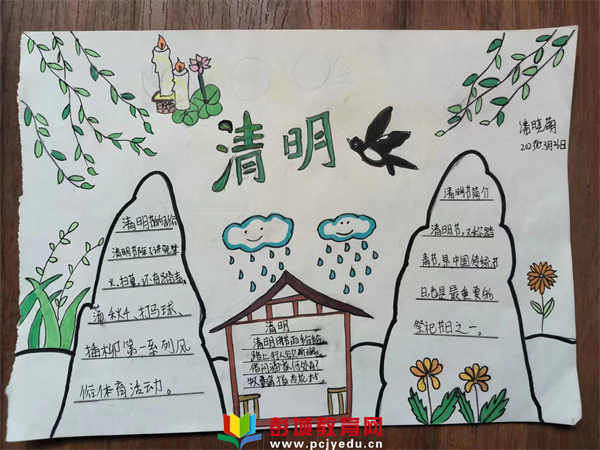 清明
潘晓萌
清明节的习俗
清明节除了讲究禁
火、扫墓,还有踏青、
荡秋千、打马球、
插柳第一系列风
俗体育活动。
清明
清明时节雨纷纷
路上行人欲断魂
借问酒家何处有
牧童遥指杏花村
清明节简介
清明节,又称踏
青节,是中国传统节
日,也是最重要的
祭祀节日之一。
彭城教育网
www.pcjyedu.cn